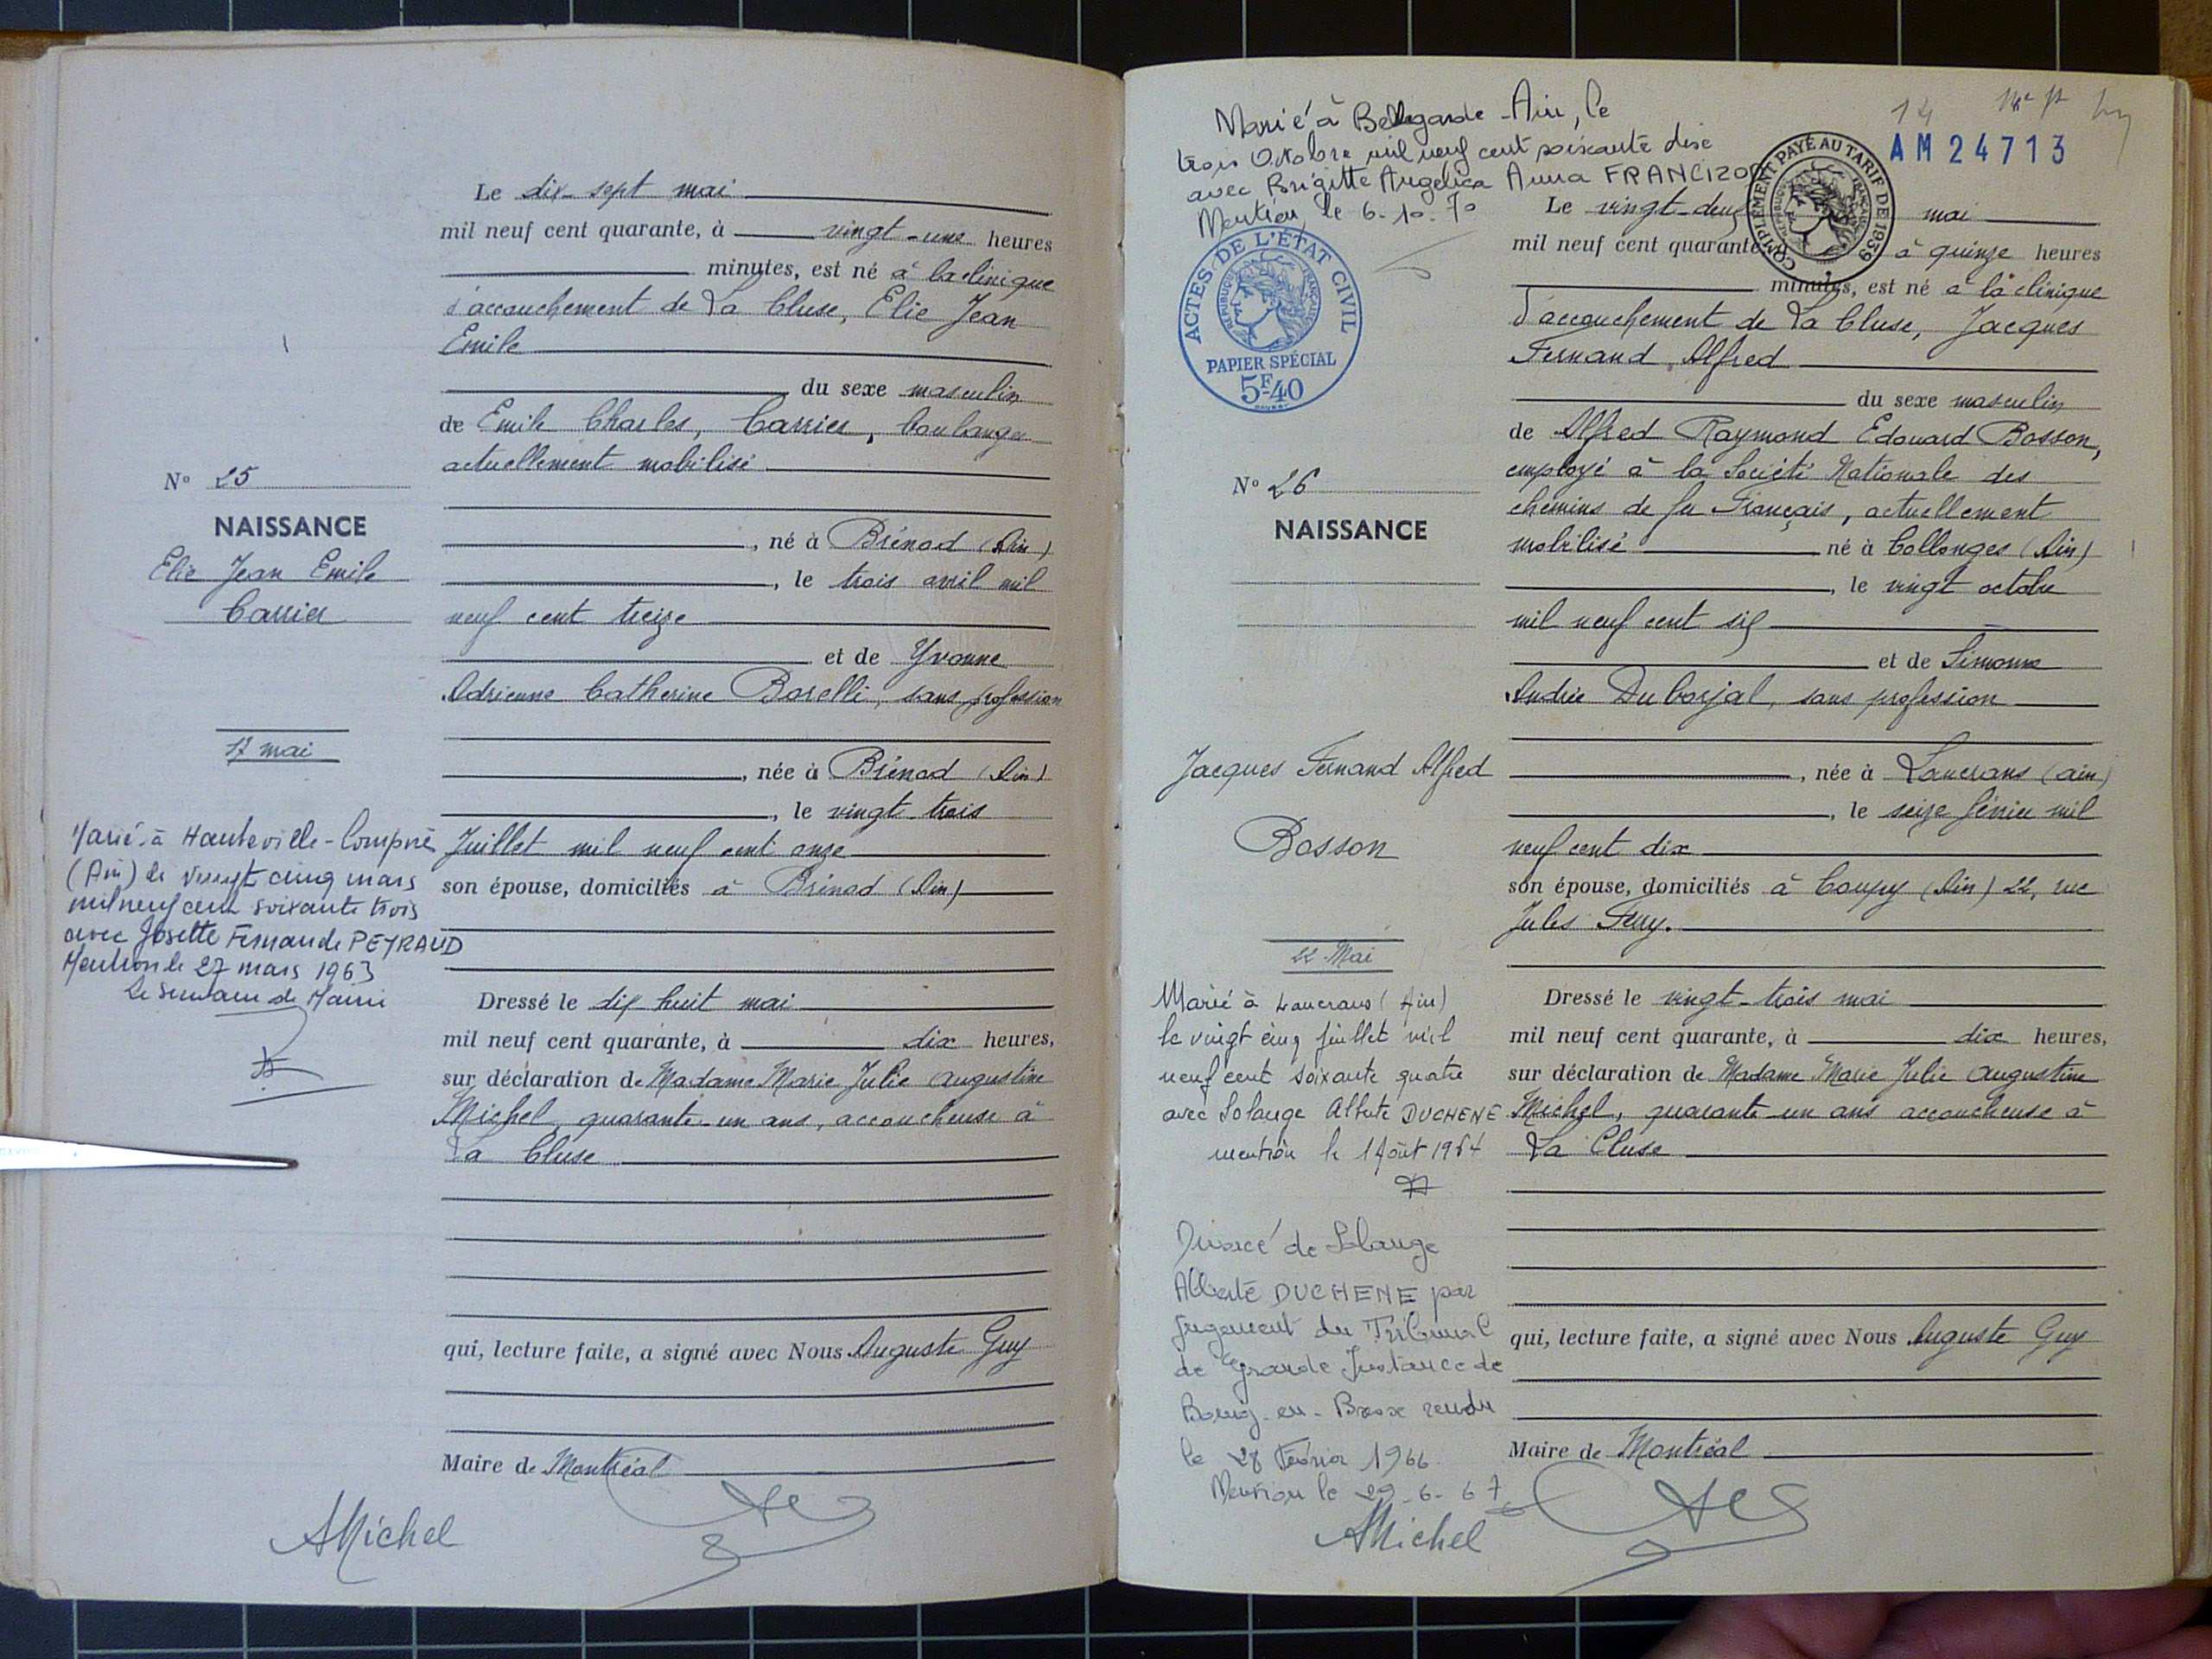 Le dix-sept mai
mil neuf cent quarante, à vingt-une heures
minutes, est né à la clinique
d'accouchement de La Cluse, Elie Jean
Emile
du sexe masculin
de Emile Charles, Carrier, boulanger
actuellement mobilisé
, né à Brénod (Ain)
, le trois avril mil
neuf cent treize
et de Yvonne
Adrienne Catherine Borelli, sans profession
, née à Brénod (Ain)
, le vingt-trois
Juillet mil neuf cent onze
son épouse, domiciliés à Brénod (Ain)
Dressé le dix huit mai
mil neuf cent quarante, à dix heures,
sur déclaration de Madame Marie Julie Augustine
Michel, quarante-un ans, accoucheuse à
La Cluse
qui, lecture faite, a signé avec Nous Auguste Guy
Maire de Montréal
AMichel
N° 25
NAISSANCE
Elie Jean Emile
Carrier
17 mai
Marié à Hauteville-Lompnès
(Ain) le vingt cinq mars
mil neuf cent soixante trois
avec Josette Fernande PEYRAUD
Mention le 27 mars 1963
Le Secrétaire de Mairie
Marié à Bellegarde-Ain, le
trois Octobre mil neuf cent soixante dix
avec Brigitte Angelica Anna
Mention le 6-10-70
14
AM24713
COMPLÉMENT PAYÉ AU TARIF DE 1939
RÉPUBLIQUE FRANÇAISE
ACTES DE L'ÉTAT CIVIL
RÉPUBLIQUE FRANÇAISE
PAPIER SPÉCIAL
5F40
Le vingt-deux mai
mil neuf cent quarante, à quinze heures
minutes, est né à la clinique
d'accouchement de La Cluse, Jacques
Fernand, Alfred
du sexe masculin
de Alfred Raymond Edouard Bosson,
employé à la Société Nationale des
chemins de fer Français, actuellement
mobilisé né à Collonges (Ain)
, le vingt octobre
mil neuf cent six
et de Simone
Andrée Duborjal, sans profession
, née à Lancrans (Ain)
, le seize février mil
neuf cent dix
son épouse, domiciliés à Coupy (Ain) 22, rue
Jules Ferry.
Dressé le vingt-trois mai
mil neuf cent quarante, à dix heures,
sur déclaration de Madame Marie Julie Augustine
Michel, quarante-un ans accoucheuse à
La Cluse
qui, lecture faite, a signé avec Nous Auguste Guy
Maire de Montréal
N° 26
NAISSANCE
Jacques Fernand Alfred
Bosson
22 Mai
Marié à Lancrans (Ain)
le vingt cinq juillet mil
neuf cent soixante quatre
avec Solange Alberte DUCHENE
mention le 1 Août 1964
Divorcé de Solange
Alberte DUCHENE par
jugement du Tribunal
de Grande Instance de
Bourg-en-Bresse rendu
le 28 Février 1966
Mention le 29-6-67
AMichel